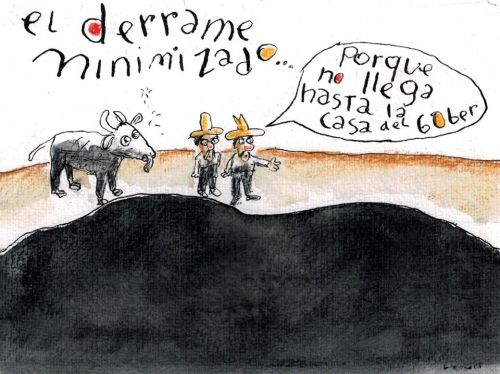 el derrame
minimizado...
Porque
no llega
hasta la
casa del Gober